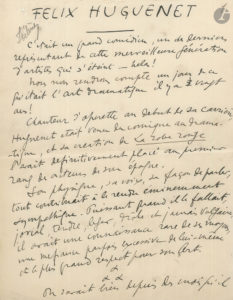 FELIX HUGUENET
C'était un grand comédien, un des derniers
représentant de cette merveilleuse génération
d'artistes qui s'éteint — hélas!
rendre compte un jour de ce
que était l'art dramatique il y a vingt
ans!
Chanteur d'opérette au début de sa carrière,
Huguenet était venu du comique au drama-
tique, et sa création de La robe rouge
l'avait définitivement placé au premier
rang des acteurs de son époque.
Son physique, sa voix, sa façon de parler,
tout contribuait à le rendre éminemment
sympathique. Puissant quand il fallait,
jovial, tendre, léger, drôle et jamais vulgaire,
il avait une connaissance rare de ses moyens,
une mesure parfois excessive de lui-même
et le plus grand respect pour son Art.
On savait bien depuis des mois qu'il